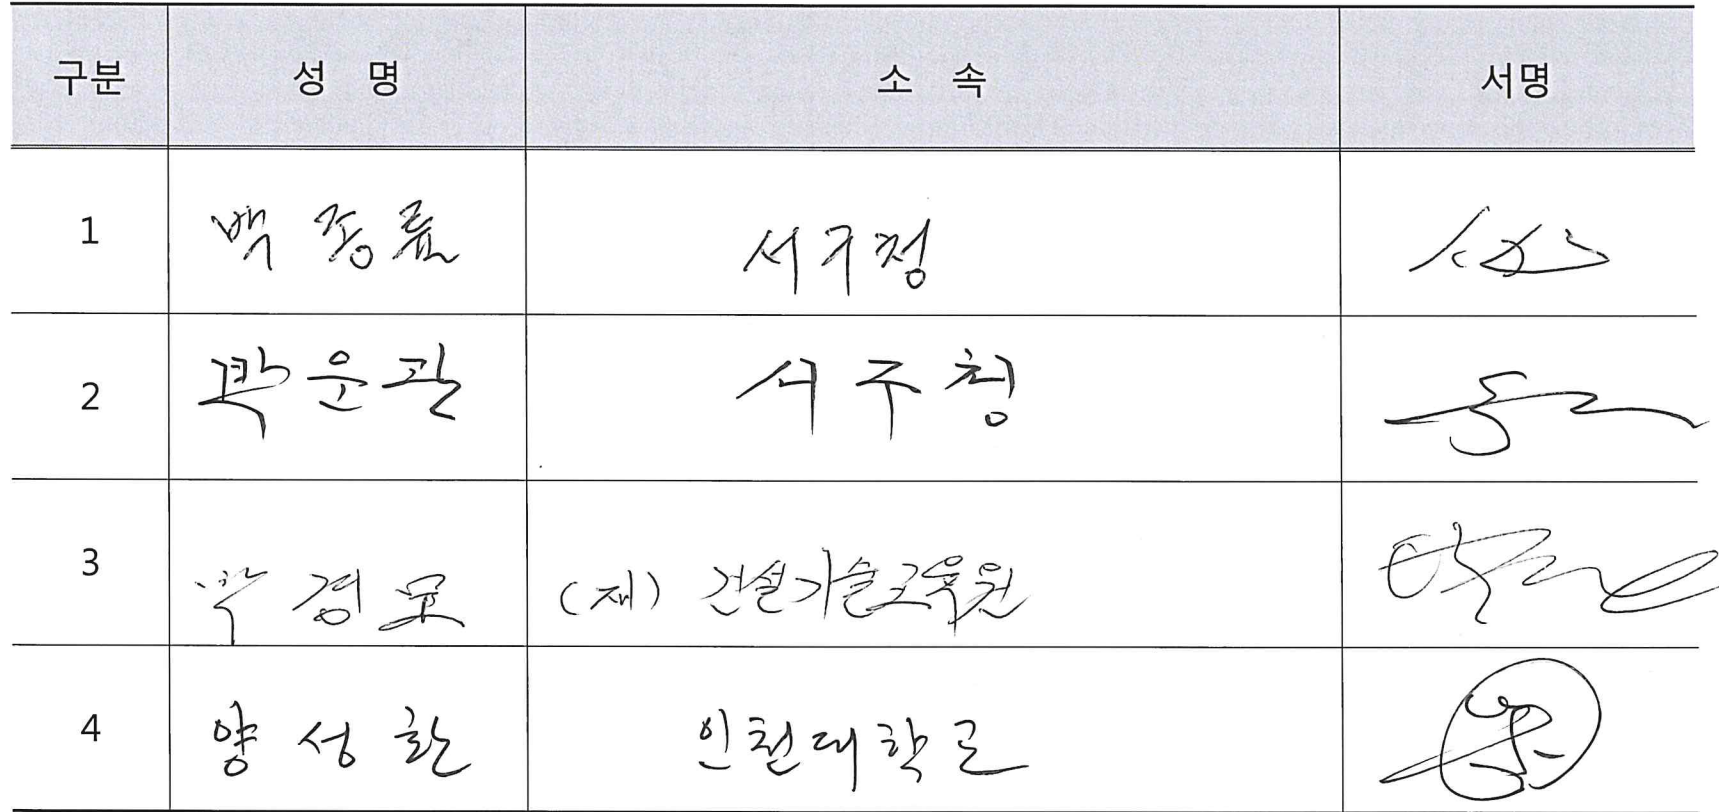 구분 성 명 소 속 서명
1 백종률 서구청
2 곽운관 서구청
3 박경모 (재) 건설기술교육원
4 양성환 인천대학교